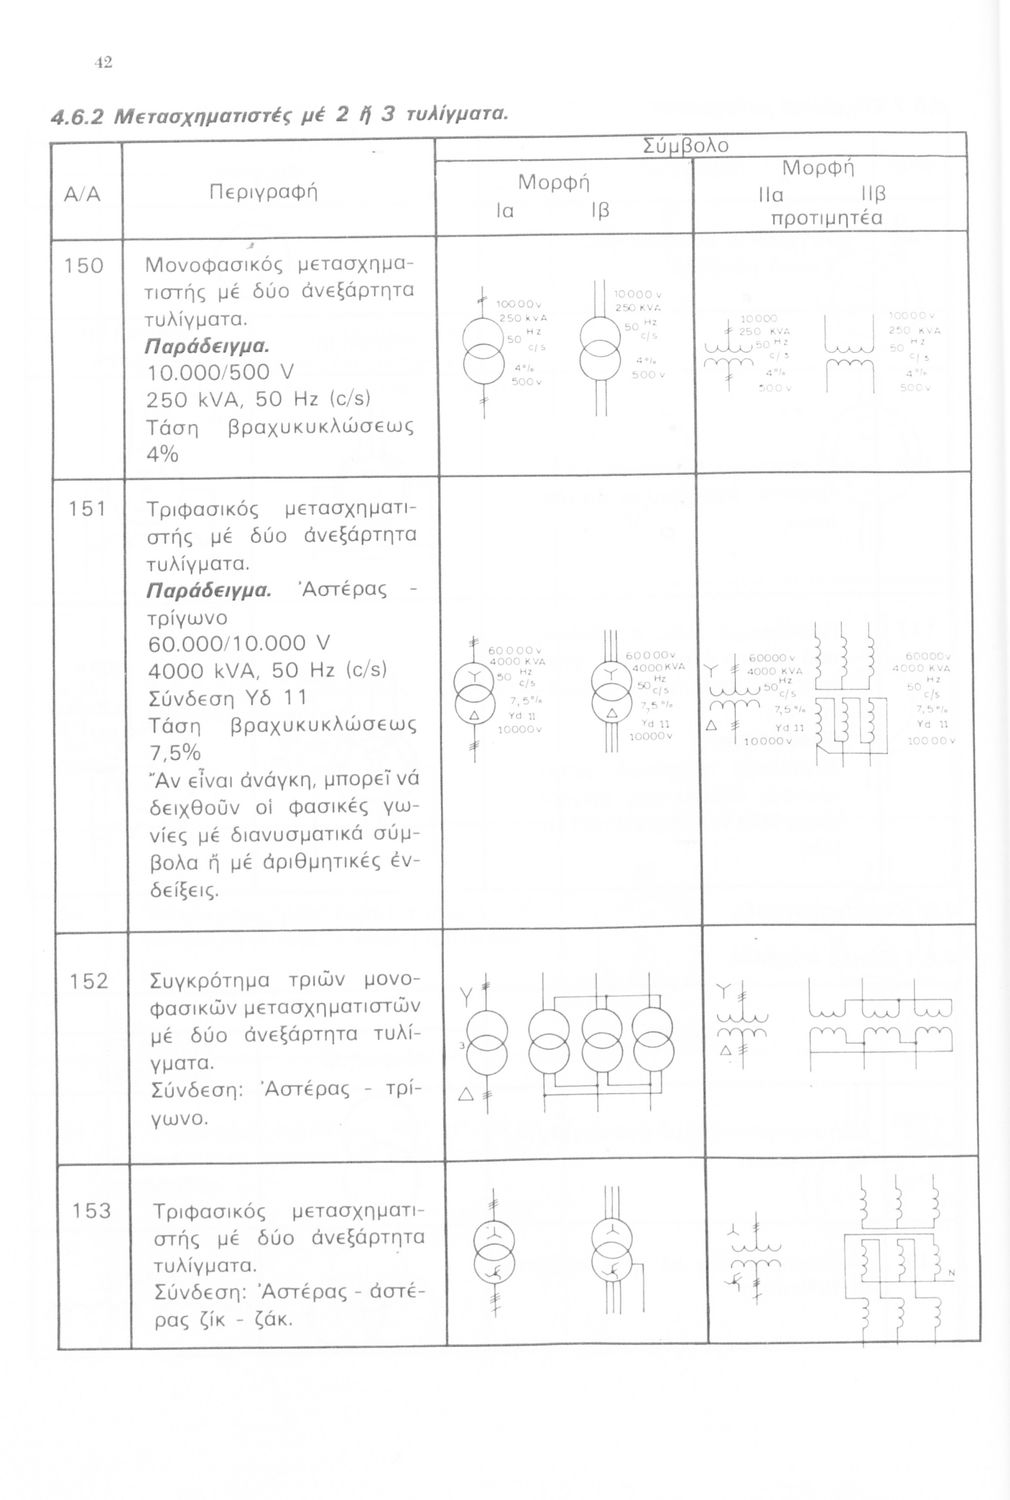 42
4.6.2 Μετασχηματιστές μέ 2 ἤ 3 τυλίγματα.
Α/Α
Περιγραφή
Σύμβολο
Μορφή
Ια Ιβ
Μορφή
ΙΙα ΙΙβ
προτιμητέα
150
Μονοφασικός μετασχημα-
τιστής μέ δύο ἀνεξάρτητα
τυλίγματα.
Παράδειγμα.
10.000/500 V
250 kVA, 50 Hz (c/s)
Τάση βραχυκυκλώσεως
4%
10000v
250 kVA
50 Hz
c/s
4%
500v
10000v
250 KVA
50 Hz
c/s
4%
500v
10000
250 KVA
50 Hz
c/s
4%
500v
10000v
250 KVA
50 Hz
c/s
4%
500v
151
Τριφασικός μετασχηματι-
στής μέ δύο ἀνεξάρτητα
τυλίγματα.
Παράδειγμα. Ἀστέρας -
τρίγωνο
60.000/10.000 V
4000 kVA, 50 Hz (c/s)
Σύνδεση Υδ 11
Τάση βραχυκυκλώσεως
7,5%
Ἄν εἶναι ἀνάγκη, μπορεῖ νά
δειχθοῦν οἱ φασικές γω-
νίες μέ διανυσματικά σύμ-
βολα ἤ μέ ἀριθμητικές ἐν-
δείξεις.
60000v
4000 KVA
50 Hz
c/s
7,5%
Yd 11
10000v
Y
Δ
60000v
4000KVA
50 Hz
c/s
7,5%
Yd 11
10000v
Y
Δ
60000v
4000 KVA
50 Hz
c/s
7,5%
Yd 11
10000v
Y
Δ
60000v
4000 KVA
50 Hz
c/s
7,5%
Yd 11
10000v
152
Συγκρότημα τριῶν μονο-
φασικῶν μετασχηματιστῶν
μέ δύο ἀνεξάρτητα τυλί-
γματα.
Σύνδεση: Ἀστέρας - τρί-
γωνο.
Y
3
Δ
Y
Δ
153
Τριφασικός μετασχηματι-
στής μέ δύο ἀνεξάρτητα
τυλίγματα.
Σύνδεση: Ἀστέρας - ἀστέ-
ρας ζίκ - ζάκ.
N